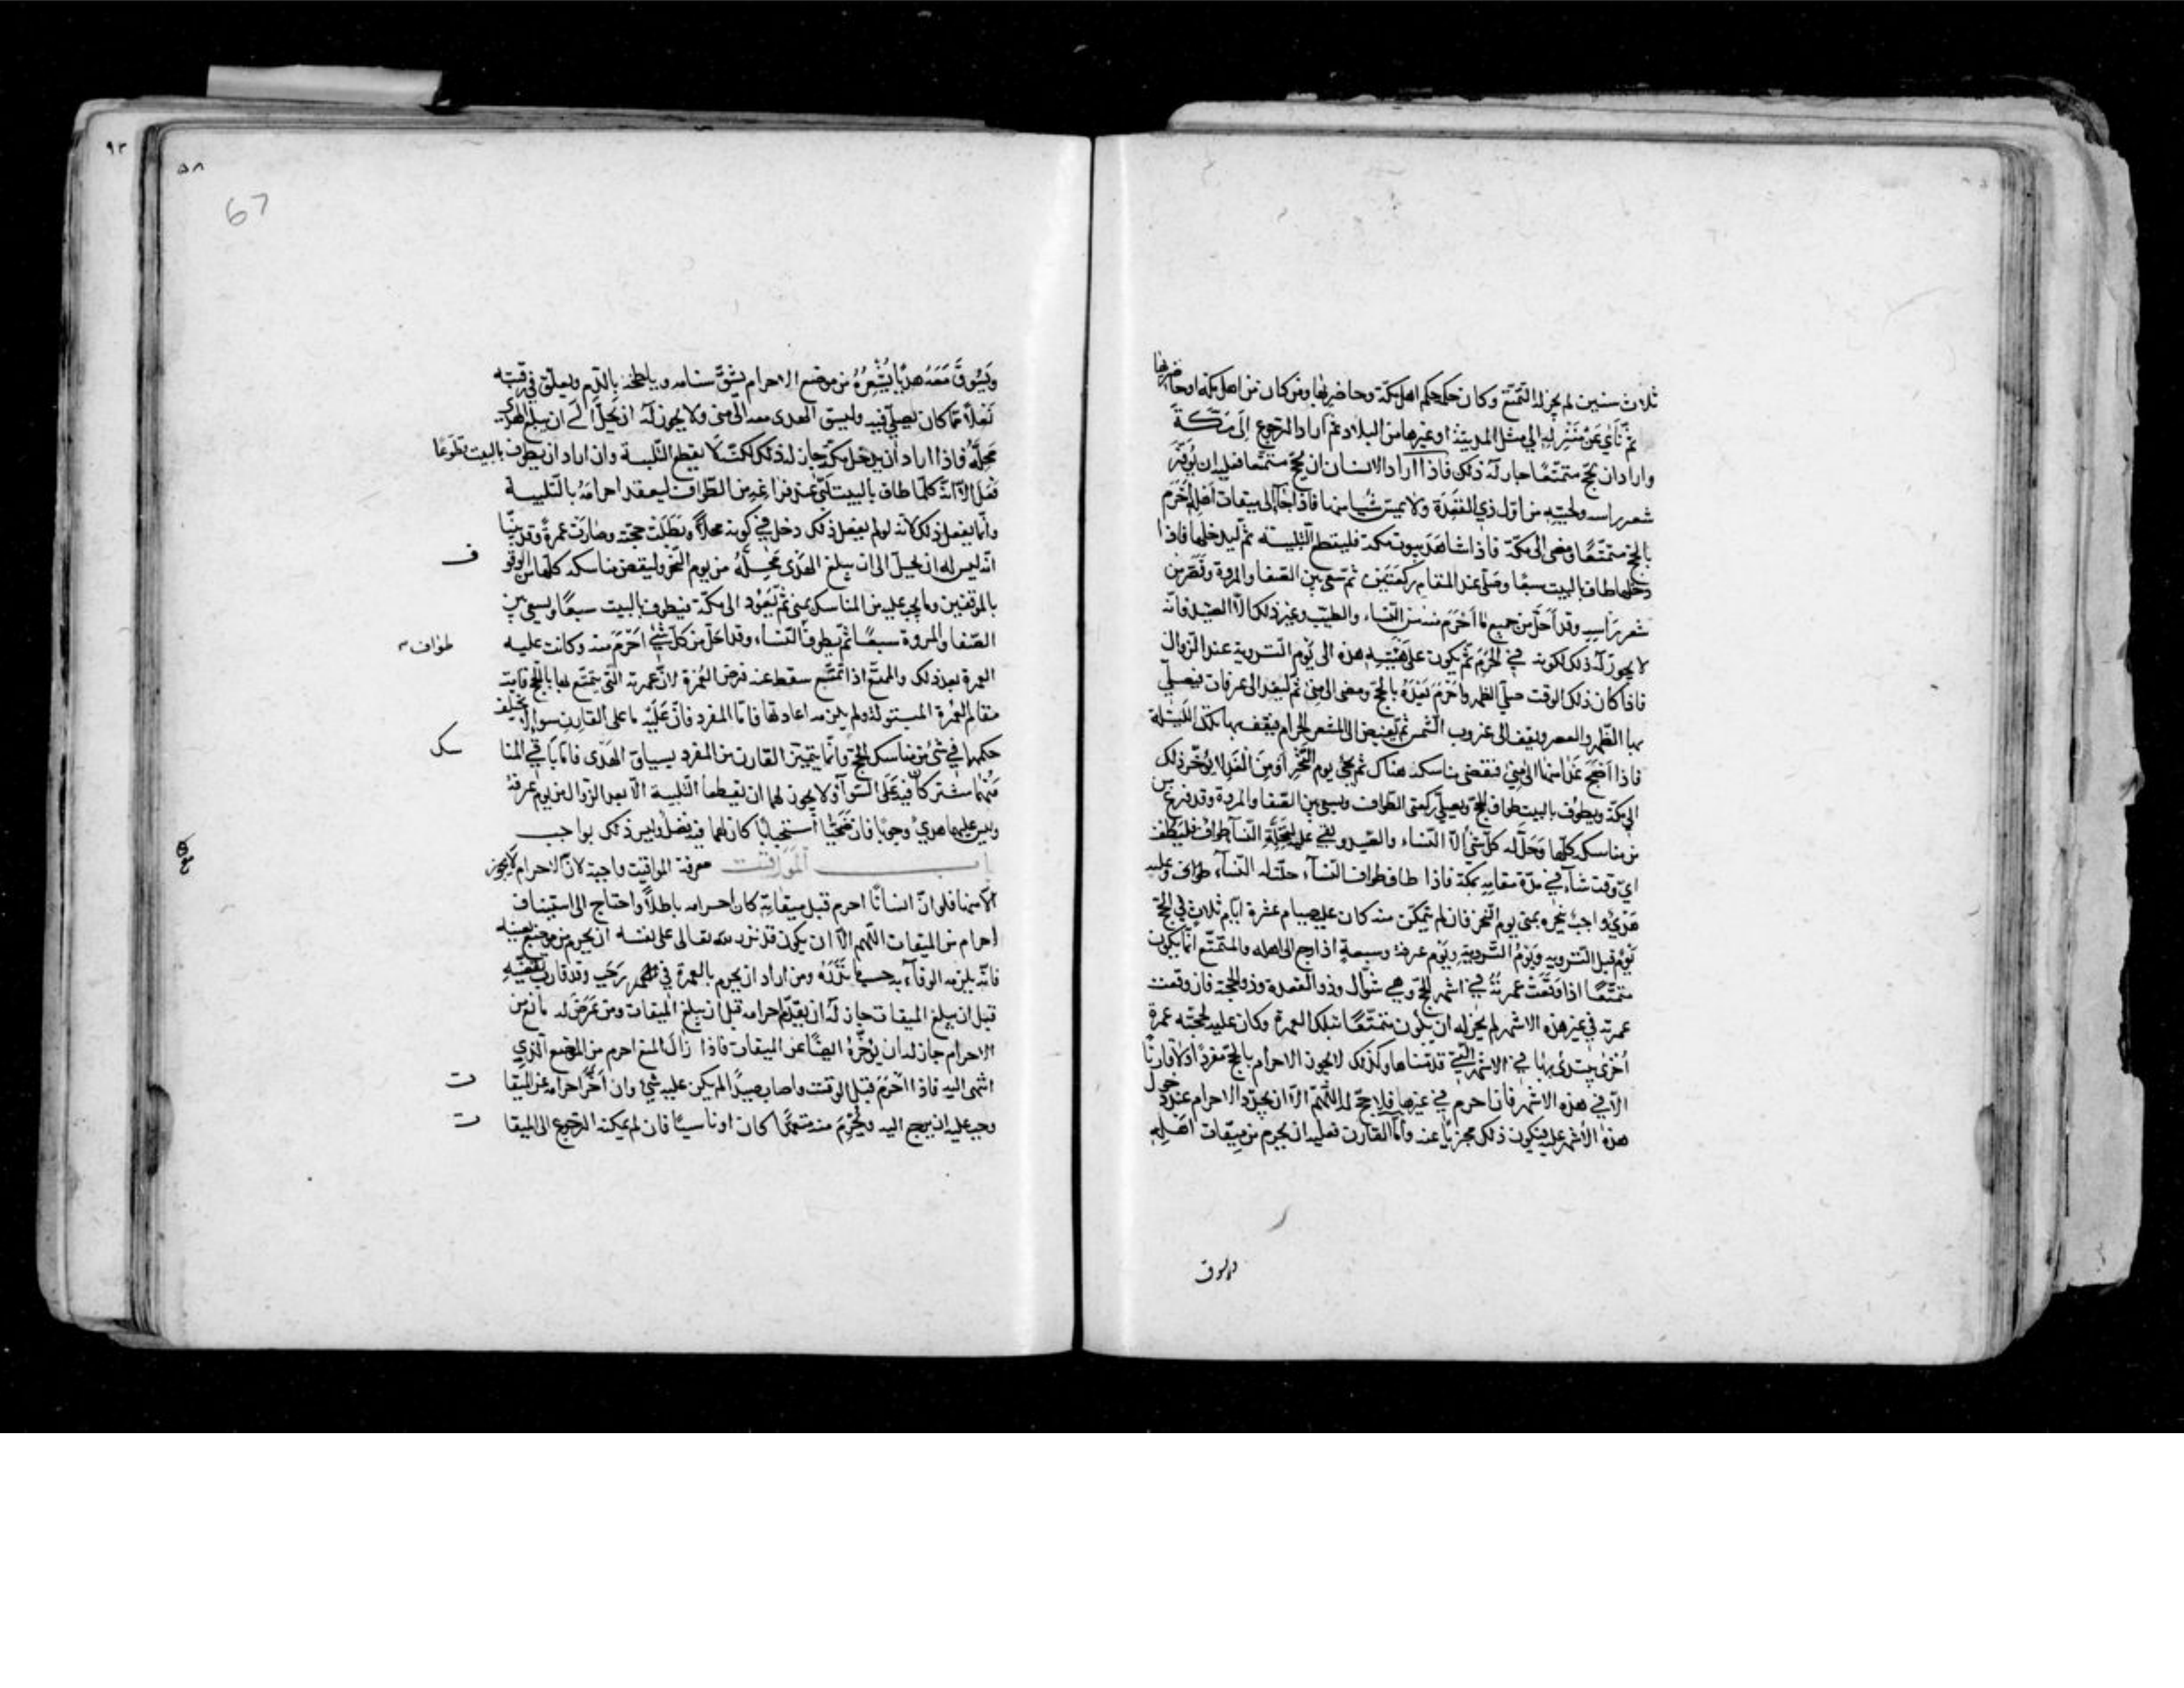 ثلاث سنين لم يجز له التمتّع وكان حكمه حكم اهل مكّة وحاضريها ومن كان من اهل مكّة او حاضريها
ثم نأى عن منزله الى مثل المدينة او غيرها من البلاد ثم اراد الرجوع الى مكّة
واراد ان يحج متمتّعًا جاز له ذلك فاذا اراد الانسان ان يحج متمتّعا فعليه ان يوفّر
شعر راسه ولحيته من اوّل ذي القعدة ولا يمسّ شيئا منها فاذا جآء الى ميقات اهله احرم
بالحج متمتّعًا ومضى الى مكّة فاذا شاهد بيوت مكة فليقطع التلبية ثم ليدخلها فاذا
دخلها طاف بالبيت سبعًا وصلّى عند المقام ركعتين ثم سعى بين الصّفا والمروة وقصّر من
شعر راسه وقد احلّ من جميع ما احرم منه من النّساء والطيب وغير ذلك الّا الصيد فانّه
لا يجوز له ذلك لكونه في الحرم ثم يكون على هيئته هذه الى يوم التروية عند الزوال
فاذا كان ذلك الوقت صلّى الظهر واحرم بعده بالحجّ ومضى الى منى ثم ليغد الى عرفات فيصلّي
بها الظّهر والعصر ويقف الى غروب الشّمس ثم ليفيض الى المشعر الحرام فيقف بها تلك اللّيلة
فاذا اصبح غدا منها الى منى فقضى مناسكه هناك ثم يجئ يوم النّحر او من الغد لا يؤخّر ذلك
الى مكّة ويطوف بالبيت طواف الحجّ ويصلّي ركعتي الطواف ويسعى بين الصّفا والمروة وقد فرغ من
من مناسكه كلّها وحلّ له كلّ شئ الّا النّساء والصّيد وبقي عليه لتحلّة النّسآء طواف فليطف
ايّ وقت شآء في مدّة مقامه بمكّة فاذا طاف طواف النسآء حلّت له النسآء طواف وعليه
هدي واجب ينحره بمنى يوم النّحر فان لم يتمكّن منه كان عليه صيام عشرة ايّام ثلاث في الحجّ
يوم قبل التروية ويوم التّروية ويوم عرفة وسبعة اذا رجع الى اهله والمتمتّع انّما يكون
متمتّعًا اذا وقعت عمرته في اشهر الحجّ وهي شوّال وذو القعدة وذو الحجّة فان وقعت
عمرته في غير هذه الاشهر لم يجز له ان يكون متمتّعًا بتلك العمرة وكان عليه لحجّته عمرة
اخرى يبتدى بها في الاشهر التي قدّمناها وكذلك لا يجوز الاحرام بالحجّ مفردًا ولا قارنًا
الّا في هذه الاشهر فان احرم في غيرها فلا حجّ له اللّهم الّا ان يجدّد الاحرام عند دخول
هذه الاشهر عليه فيكون ذلك مجزيا عنه وامّا القارن فعليه ان يحرم من ميقات اهله
ويسوق
٩٣
٥٨
67
ويسوق معه هديًا يشعره من موضع الاحرام يشق سنامه ويلطخه بالدّم ويعلّق في رقبته
نعلًا ممّا كان يصلّي فيه وليسق الهدى معه الى منى ولا يجوز له ان يحلّ الى ان يبلغ الهدي
محلّه فاذا اراد ان يدخل مكّة جاز له ذلك لكنّه لا يقطع التّلبية وان اراد ان يطوف بالبيت تطوّعًا
فعل الّا انّه كلّما طاف بالبيت لبّى عند فراغه من الطّواف ليعقد احرامه بالتّلبية
وانّما يفعل ذلك لانّه لو لم يفعل ذلك دخل في كونه محلّا وبطلت حجّته وصارت عمرة وقد بيّنا
انّه ليس له ان يحلّ الى ان يبلغ الهدى محلّه من يوم النّحر وليقض مناسكه كلّها من الوقوف
بالموقفين وما يجب عليه من المناسك بمنى ثم يعود الى مكّة فيطوف بالبيت سبعًا ويسعى بين
الصّفا والمروة سبعًا ثم يطوف النّساء وقد احلّ من كلّ شئ احرم منه وكانت عليه طواف
العمرة بعد ذلك والمتمتّع اذا تمتّع سقط عنه فرض العمرة لانّ عمرته التي يتمتّع بها بالحجّ قامت
مقام العمرة المبتولة ولم يلزمه اعادتها فامّا المفرد فانّ عليه ما على القارن سواء لا يختلف
حكمهما في شئ من مناسك الحجّ وانّما يتميّز القارن من المفرد بسياق الهدى فامّا باقي المناسك
فهما مشتركان فيه على السّوآء ولا يجوز لهما ان يقطعا التّلبية الّا بعد الزوال من يوم عرفة
وليس عليهما هدي وجوبا فان ضحّيا استحبابًا كان لهما فيه فضل وليس ذلك بواجب
باب المواقيت معرفة المواقيت واجبة لانّ الاحرام لا يجوز
الّا منها فلو انّ انسانًا احرم قبل ميقاته كان احرامه باطلًا واحتاج الى استيناف
احرام من الميقات اللّهم الّا ان يكون قد نذر لله تعالى على نفسه ان يحرم من موضع بعينه
فانّه يلزمه الوفآء به حسبما نذره ومن اراد ان يحرم بالعمرة في شهر رجب وقد قارب تقضّيه
قبل ان يبلغ الميقات جاز له ان يقدّم احرامه قبل ان يبلغ الميقات ومن عرض له مانع من
الاحرام جاز له ان يؤخّره ايضًا عن الميقات فاذا زال المنع احرم من الموضع الذي
انتهى اليه فاذا احرم قبل الوقت واصاب صيدًا لم يكن عليه شئ وان اخّر احرامه عن الميقات
وجب عليه ان يرجع اليه ويحرم منه متعمّدًا كان او ناسيًا فان لم يمكنه الرجوع الى الميقات